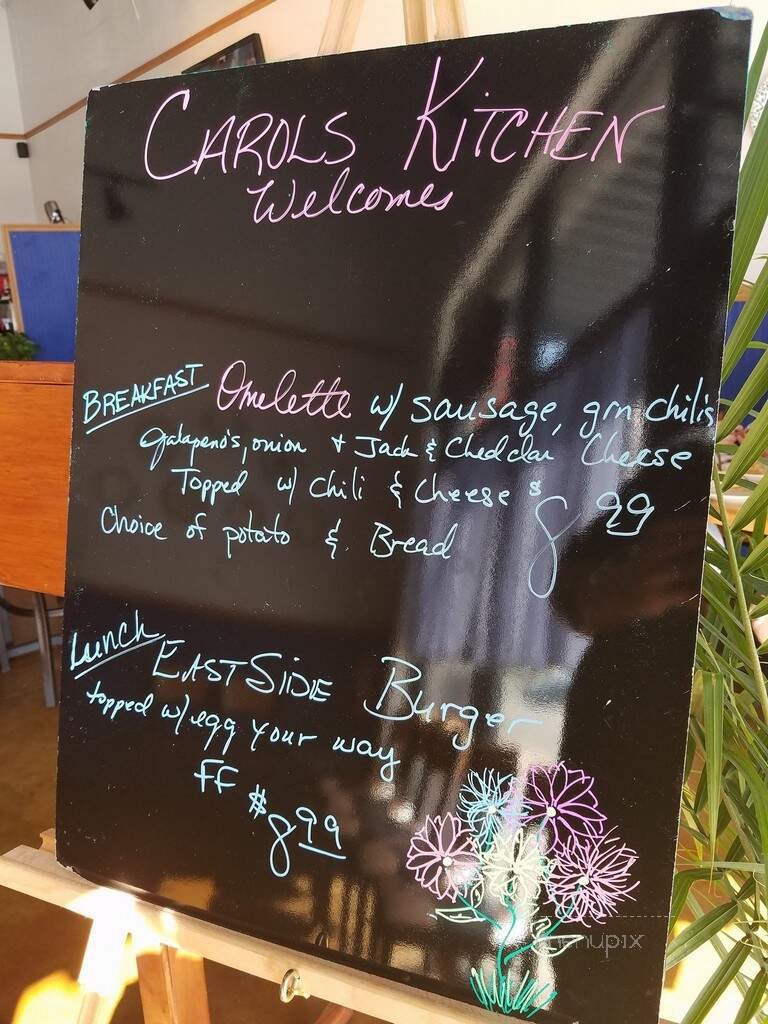 CAROLS KITCHEN
Welcomes
BREAKFAST Omelette w/ sausage, grn chilis
Jalapeno's, onion + Jack & Cheddar Cheese
Topped w/ chili & Cheese $8.99
Choice of potato & Bread
Lunch EAST SIDE Burger
topped w/ egg your way
FF $8.99
menupix